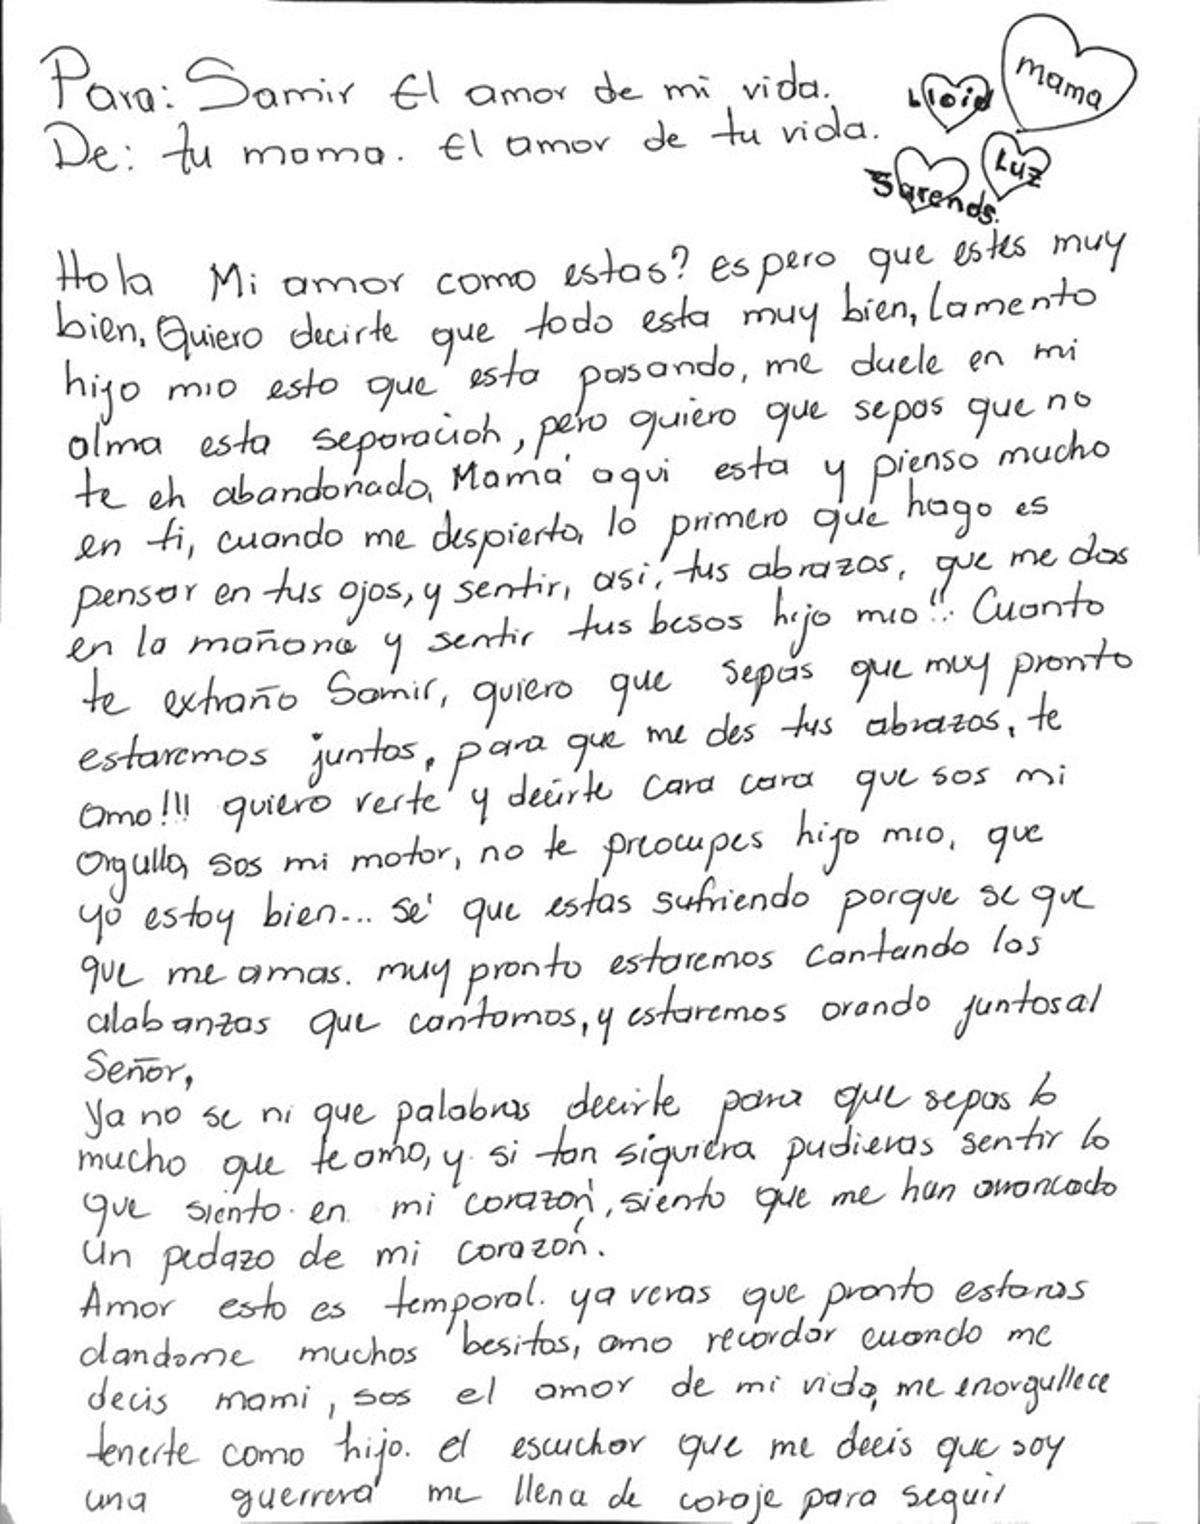 Para: Samir El amor de mi vida.
De: tu mama. El amor de tu vida.
mama
Lloid
Luz
Sarends.
Hola Mi amor como estas? espero que estes muy
bien, Quiero decirte que todo esta muy bien, lamento
hijo mio esto que esta pasando, me duele en mi
alma esta separacion, pero quiero que sepas que no
te eh abandonado, Mamá aqui esta y pienso mucho
en ti, cuando me despierto, lo primero que hago es
pensar en tus ojos, y sentir, asi, tus abrazos, que me das
en la mañana y sentir tus besos hijo mio!! Cuanto
te extraño Samir, quiero que sepas que muy pronto
estaremos juntos, para que me des tus abrazos, te
amo!!! quiero verte y decirte cara cara que sos mi
Orgullo, sos mi motor, no te preocupes hijo mio, que
yo estoy bien... sé que estas sufriendo porque se que
que me amas. muy pronto estaremos cantando los
alabanzas que cantamos, y estaremos orando juntos al
Señor,
Ya no se ni que palabras decirte para que sepas lo
mucho que te amo, y si tan siquiera pudieras sentir lo
que siento en mi corazón, siento que me han arrancado
un pedazo de mi corazón.
Amor esto es temporal. ya veras que pronto estaras
dandome muchos besitos, amo recordar cuando me
decis mami, sos el amor de mi vida, me enorgullece
tenerte como hijo. el escuchar que me decis que soy
una guerrera me llena de coraje para seguir